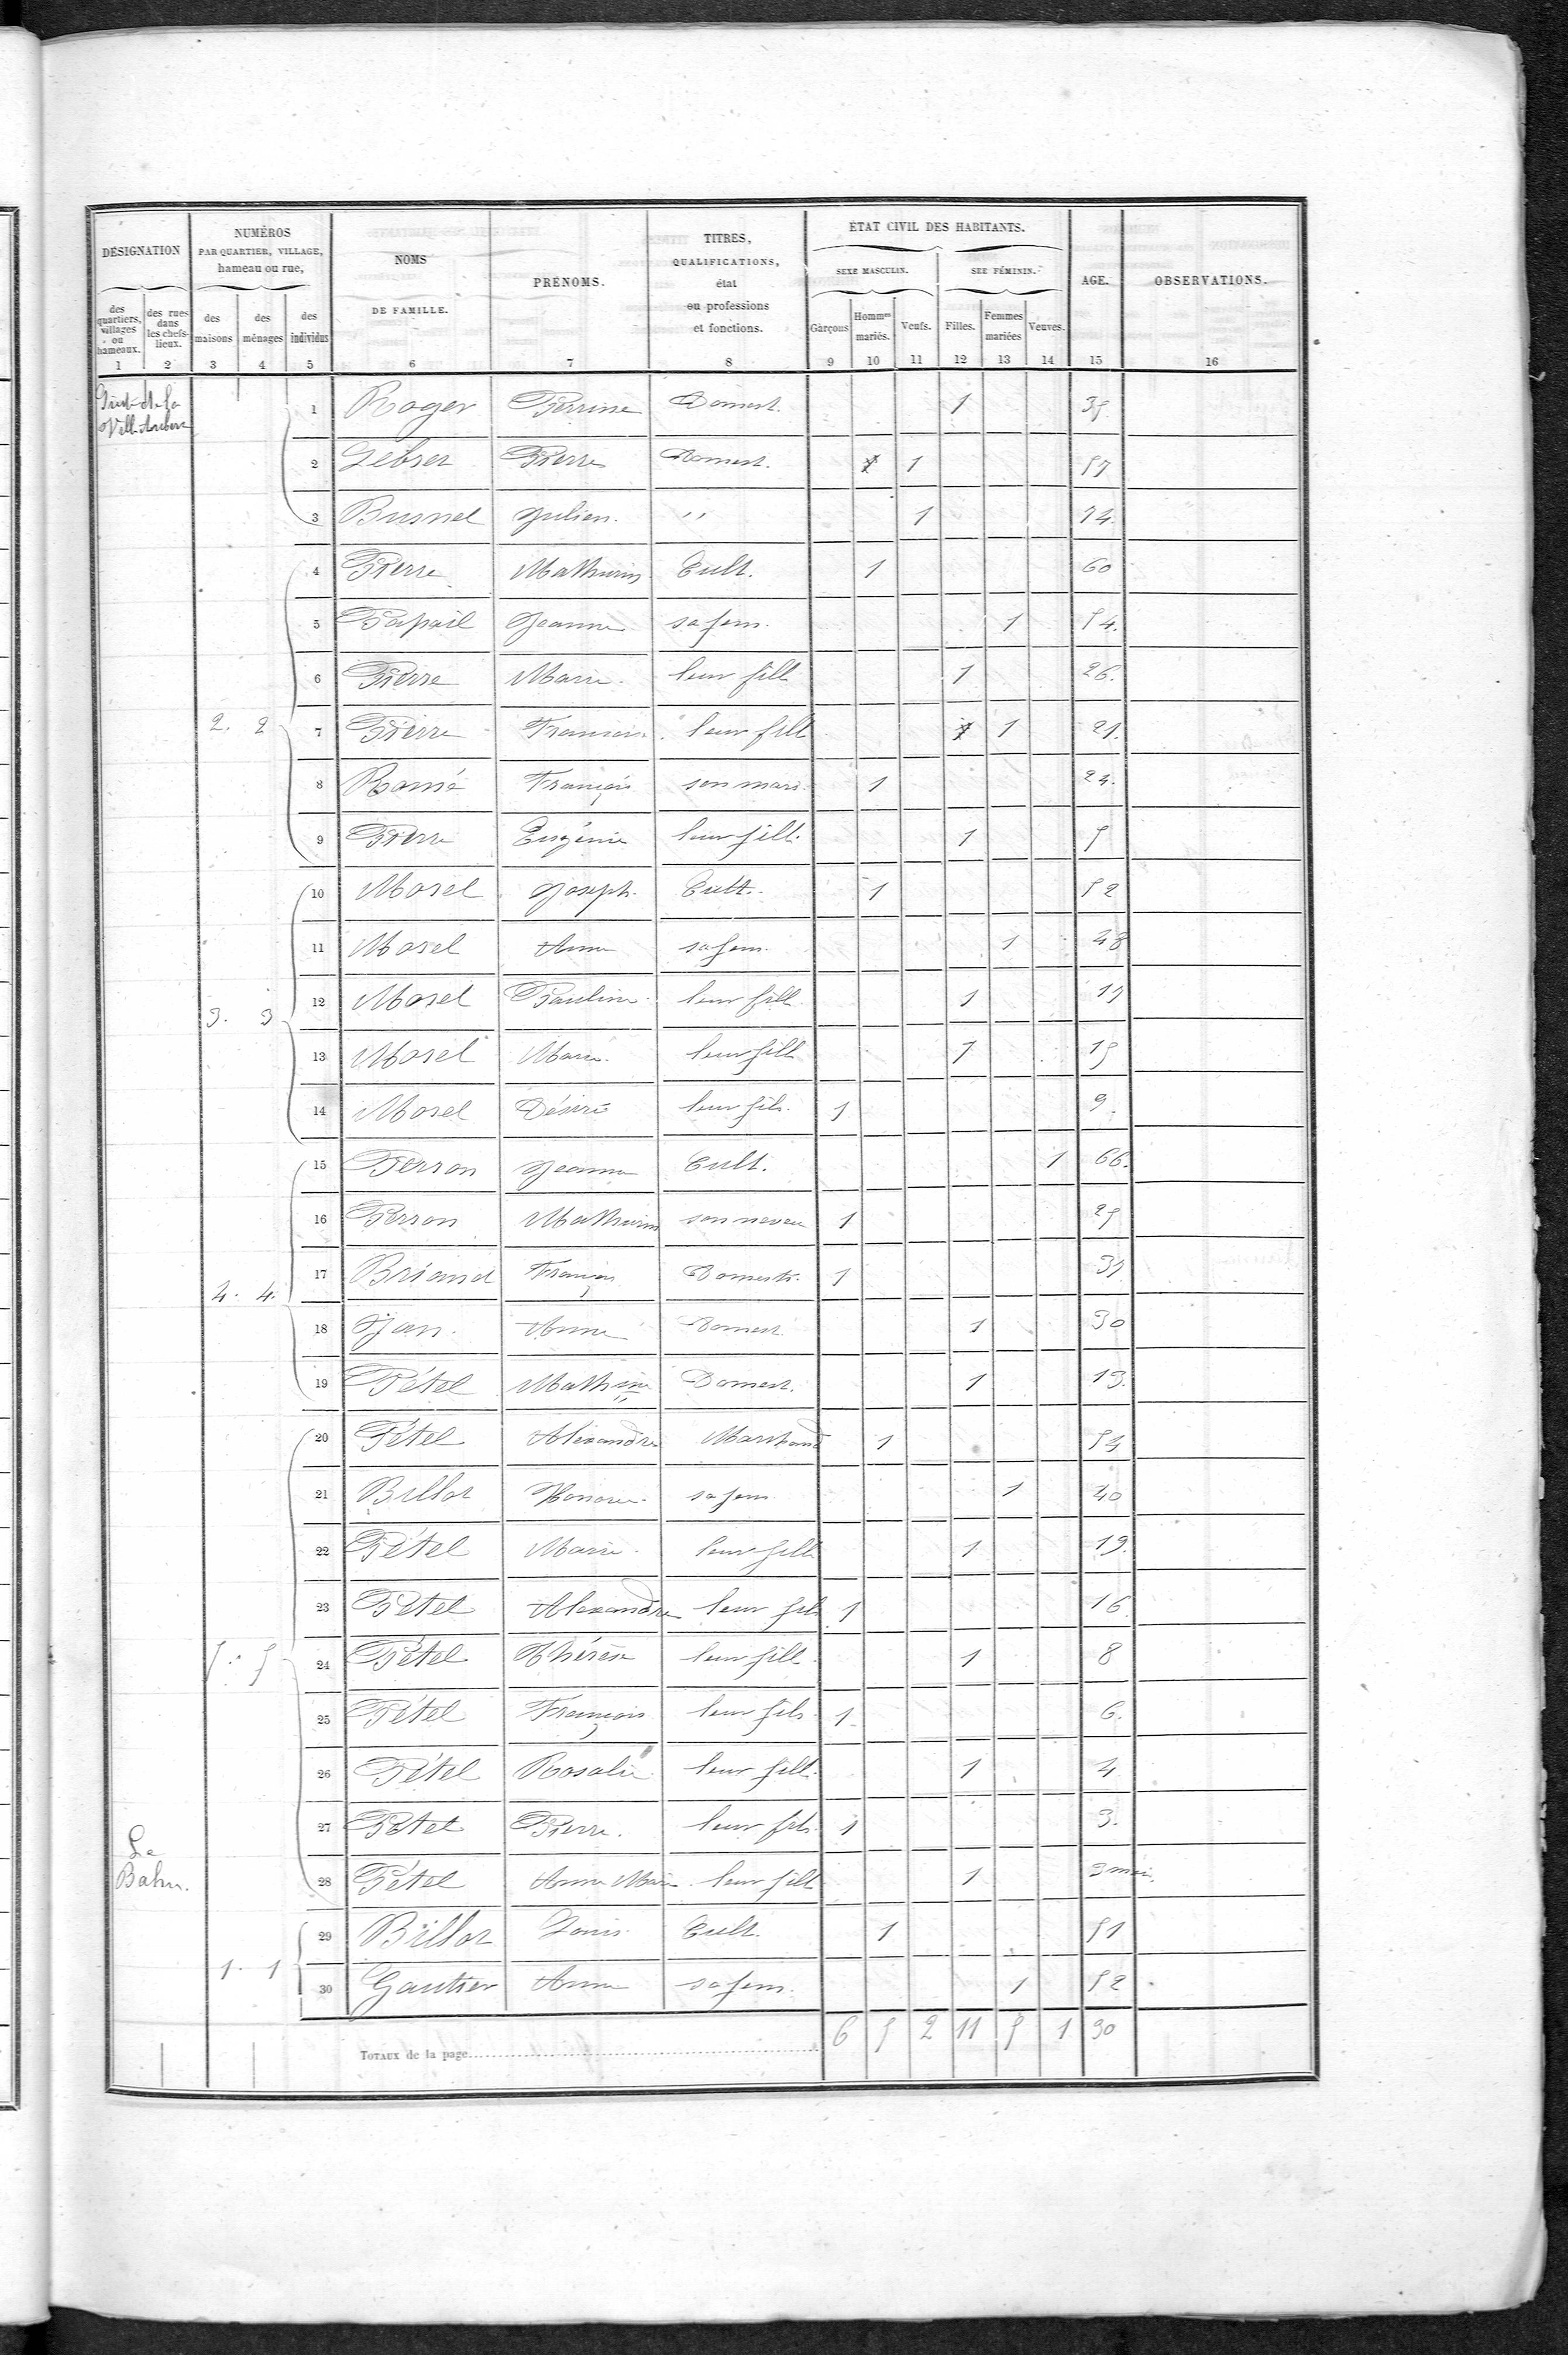 DÉSIGNATION
NUMÉROS
PAR QUARTIER, VILLAGE,
hameau ou rue,
NOMS
DE FAMILLE.
PRÉNOMS.
TITRES,
QUALIFICATIONS,
état
ou professions
et fonctions.
ÉTAT CIVIL DES HABITANTS.
SEXE MASCULIN.
SEE FÉMININ.
AGE.
OBSERVATIONS.
des quartiers, villages ou hameaux.
des rues dans les chefs-lieux.
des maisons
des ménages
des individus
Garçons
Hommes mariés.
Veufs.
Filles.
Femmes mariées
Veuves.
1 2 3 4 5 6 7 8 9 10 11 12 13 14 15 16
1 Roger Perrine Domest. 1 35
2 Pierre Domest. 1 1 57
3 Busnel Julien. " 1 74.
4 Pierre Mathurin Cult. 1 60
5 Papail Jeanne sa fem. 1 54.
6 Pierre Marie. leur fill 1 26.
2. 2 7 Pierre leur fill 1 1 21.
8 Romé François son mari. 1 24.
9 Pierre Eugénie leur fill. 1 5
10 Morel Joseph. Cult. 1 52
11 Morel Anne sa fem. 1 48
3. 3 12 Morel Pauline. leur fill. 1 17
13 Morel Marie. leur fill 1 15
14 Morel Désiré leur fils. 1 9.
15 Perron Jeanne Cult. 1 66.
16 Perron Mathurin son neveu 1 25
4. 4. 17 Briand François Domest. 1 31
18 Jan. Anne Domest. 1 30
19 Pétel Domest. 1 13.
20 Pétel Alexandre Marchand 1 54
21 Billot Honorée sa fem. 1 40
22 Pétel Marie. leur fill 1 19.
23 Pétel Alexandre leur fils 1 16
5. 5 24 Pétel Thérèse leur fill. 1 8
25 Pétel François leur fils. 1 6.
26 Pétel Rosalie leur fill. 1 4
27 Pétel Pierre. leur fils. 1 3.
Le
Bahu.
28 Pétel Anne Marie. leur fill 1 3 mois.
29 Billot Louis Cult. 1 51
1. 1 30 Gautier Anne sa fem. 1 52
TOTAUX de la page 6 5 2 11 5 1 30